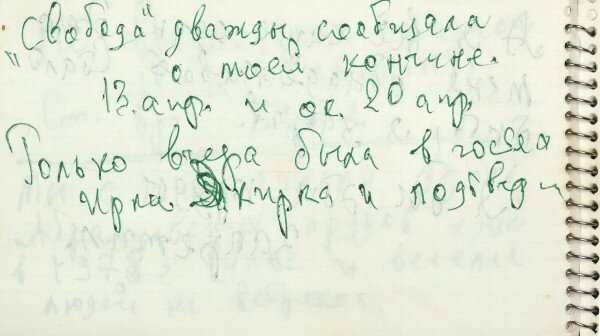 "Свобода" дважды сообщала
о моей кончине.
13. апр. и ок. 20 апр.
Только вчера была в гостях
Якирка и